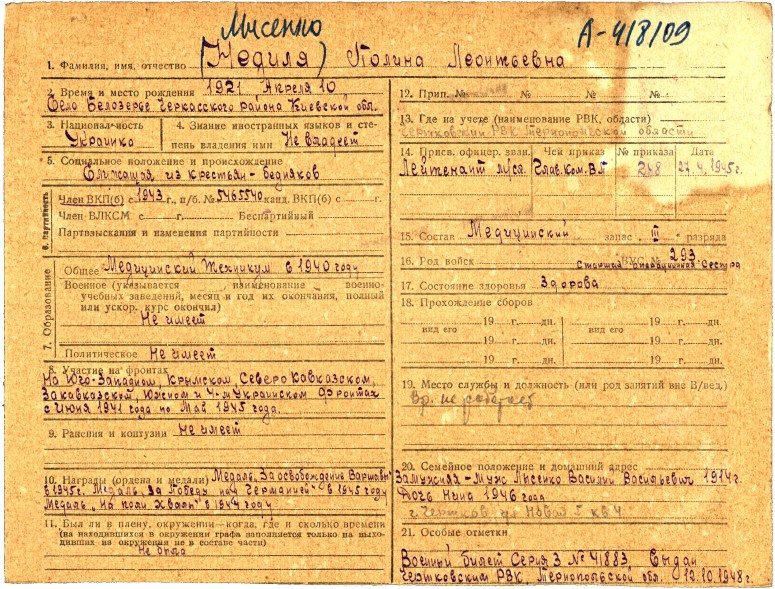 Лысенко
А-418109
1. Фамилия, имя, отчество (Недиля) Полина Леонтьевна
2. Время и место рождения 1921 Апреля 10
Село Белозерье Черкасского района Киевской обл.
3. Национальность Украинка
4. Знание иностранных языков и степень владения ими Не владеет
5. Социальное положение и происхождение
Служащая из крестьян-бедняков
6. Партийность
Член ВКП(б) с 1943 г., п/б. № 5465540 канд. ВКП(б) с г.
Член ВЛКСМ с г. Беспартийный
Партвзыскания и изменения партийности
7. Образование
Общее Медицинский Техникум в 1940 году
Военное (указывается наименование военно-
учебных заведений, месяц и год их окончания, полный
или ускор. курс окончил)
Не имеет
Политическое Не имеет
8. Участие на фронтах
На Юго-Западном, Крымском, Северо Кавказском,
Закавказском, Южном и 4-м Украинском Фронтах
с Июня 1941 года по Май 1945 года.
9. Ранения и контузии Не имеет
10. Награды (ордена и медали) Медаль "За освобождение Варшавы"
в 1945 г. Медаль "За Победу над Германией" в 1945 году
Медаль в 1944 году
11. Был ли в плену, окружении—когда, где и сколько времени
(на находившихся в окружении графа заполняется только на выхо-
дивших из окружения не в составе части)
Не была
12. Прип. № № № №
13. Где на учете (наименование РВК, области)
Чертковский РВК Тернопольской области
14. Присв. офицер. зван. Чей приказ № приказа Дата
Лейтенант м/сл. Глав.ком.ВЛ 248 27.4.1945г.
15. Состав Медицинский запас III разряда
16. Род войск ВУС № 293
Старшая операционная сестра
17. Состояние здоровья Здорова
18. Прохождение сборов
19 г. дн. 19 г. дн.
вид его 19 г. дн. вид его 19 г. дн.
19 г. дн. 19 г. дн.
19. Место службы и должность (или род занятий вне В/вед.)
Вр. не работает
20. Семейное положение и домашний адрес
Замужняя - муж Лысенко Василий Васильевич 1914 г.
Дочь Нина 1946 года
г. Чертков ул Новая 5 кв 4
21. Особые отметки
Военный билет Серия З № 41883 Выдан
Чертковским РВК, Тернопольской обл. 12.10.1948 г.